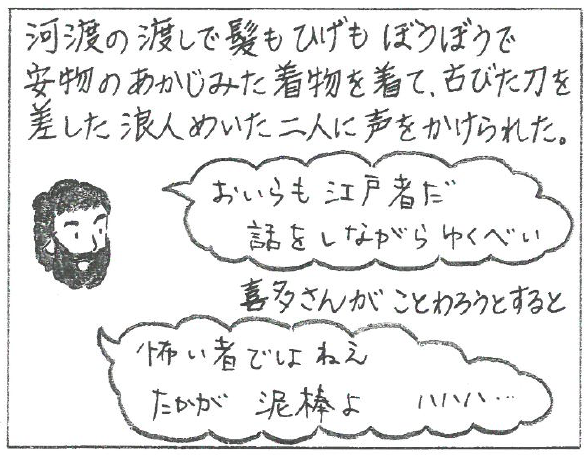 河渡の渡しで髪もひげもぼうぼうで
安物のあかじみた着物を着て、古びた刀を
差した浪人めいた二人に声をかけられた。
おいらも江戸者だ
話をしながらゆくべい
喜多さんがことわろうとすると
怖い者でよねえ
たかが 泥棒よ ハハハ…